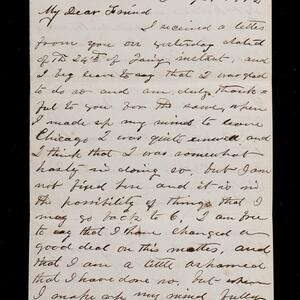 My Dear Friend
I received a letter
from you on yesterday dated
of th 24th of Jany instant, and
I beg leave to say that I was glad
to do so and am duly thank =
ful to you for the same, when
I made up my mind to leave
Chicago I was quite unwell and
I think that I was somewhat
hasty in doing so, but I am
not fixed here and it is in
the possibility of things that I
may go back to C, I am free
to say that I have changed a
good deal on this matter, and
that I am a little ashamed
that I have done so, but when
I make up my mind fully